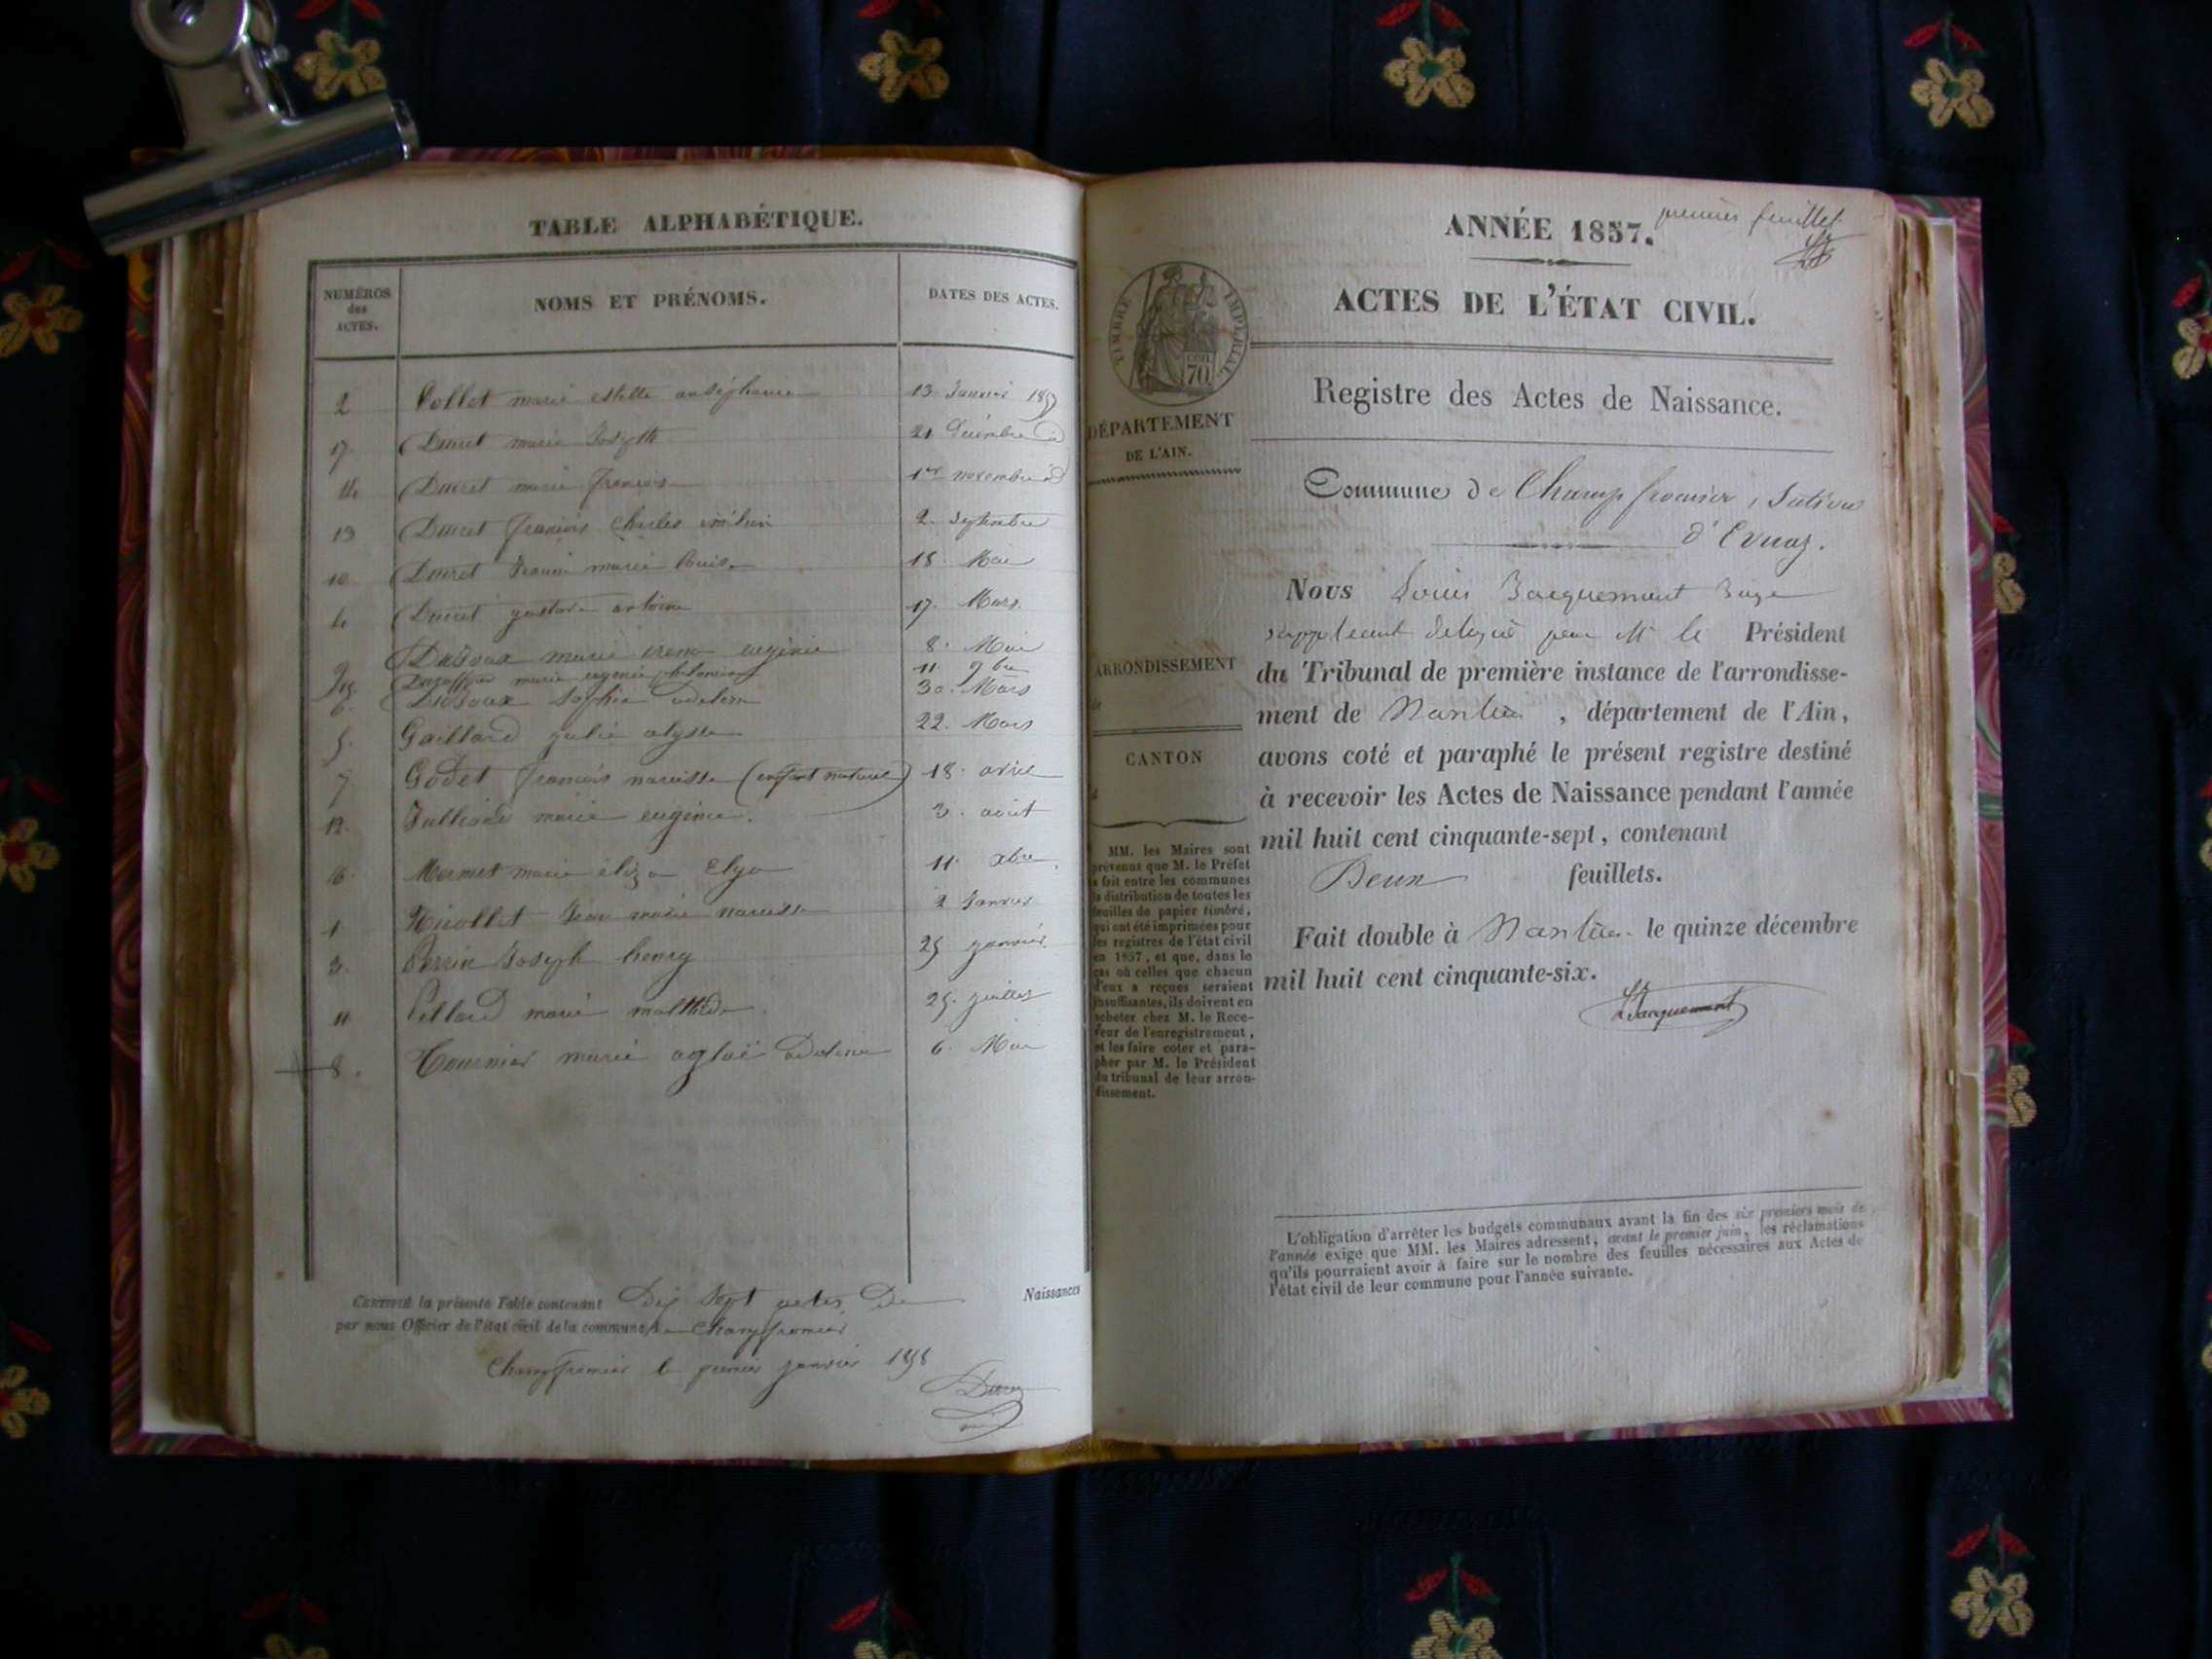 TABLE ALPHABÉTIQUE.
NUMÉROS
des
ACTES.
NOMS ET PRÉNOMS.
DATES DES ACTES.
2 Collet marie estelle 13. Janvier 1857
17. Ducret marie Josephte 21 Décembre id
14 Ducret marie françois 1er novembre id
13 Ducret françois Charles 2. Septembre
10 Ducret marie 18. Mai
4 Ducret gustave antoine 17. Mars.
9 Ducroux marie irena eugénie 8. Mai
15 marie eugenie 11. 9bre
6. Ducroux Sophie adeline 30. Mars
5. Gaillard julie 22. Mars
7 Godet françois narcisse (enfant naturel) 18. avril
12. Julliard marie eugénie. 3. août
16. Mermet marie éliza 11. xbre
1 Nicollet Jean marie narcisse 2 Janvier
3. Perrin Joseph henry 25 janvier
11 Pillard marie mathilde 25. juillet
8. Tournier marie aglaë adeline 6. Mai
CERTIFIÉ la présente Table contenant Dix Sept actes De Naissances
par nous Officier de l'état civil de la commune de Champfromier
Champfromier le premier janvier 1858
Ducret
premier feuillet
ANNÉE 1857.
ACTES DE L'ÉTAT CIVIL.
TIMBRE IMPÉRIAL
CEN. 70
Registre des Actes de Naissance.
DÉPARTEMENT
DE L'AIN.
Commune de Champfromier, Section
d'Evuaz.
Nous Louis Jacquemont Juge
suppléant délégué par Mr le Président
du Tribunal de première instance de l'arrondisse-
ment de Nantua, département de l'Ain,
avons coté et paraphé le présent registre destiné
à recevoir les Actes de Naissance pendant l'année
mil huit cent cinquante-sept, contenant
Deux feuillets.
Fait double à Nantua. le quinze décembre
mil huit cent cinquante-six.
LJacquemont
ARRONDISSEMENT
de
CANTON
d
MM. les Maires sont
prévenus que M. le Préfet
a fait entre les communes
la distribution de toutes les
feuilles de papier timbré,
qui ont été imprimées pour
les registres de l'état civil
en 1857, et que, dans le
cas où celles que chacun
d'eux a reçues seraient
insuffisantes, ils doivent en
acheter chez M. le Rece-
veur de l'enregistrement,
et les faire coter et para-
pher par M. le Président
du tribunal de leur arron-
dissement.
L'obligation d'arrêter les budgets communaux avant la fin des six premiers mois de
l'année exige que MM. les Maires adressent, avant le premier juin, les réclamations
qu'ils pourraient avoir à faire sur le nombre des feuilles nécessaires aux Actes de
l'état civil de leur commune pour l'année suivante.